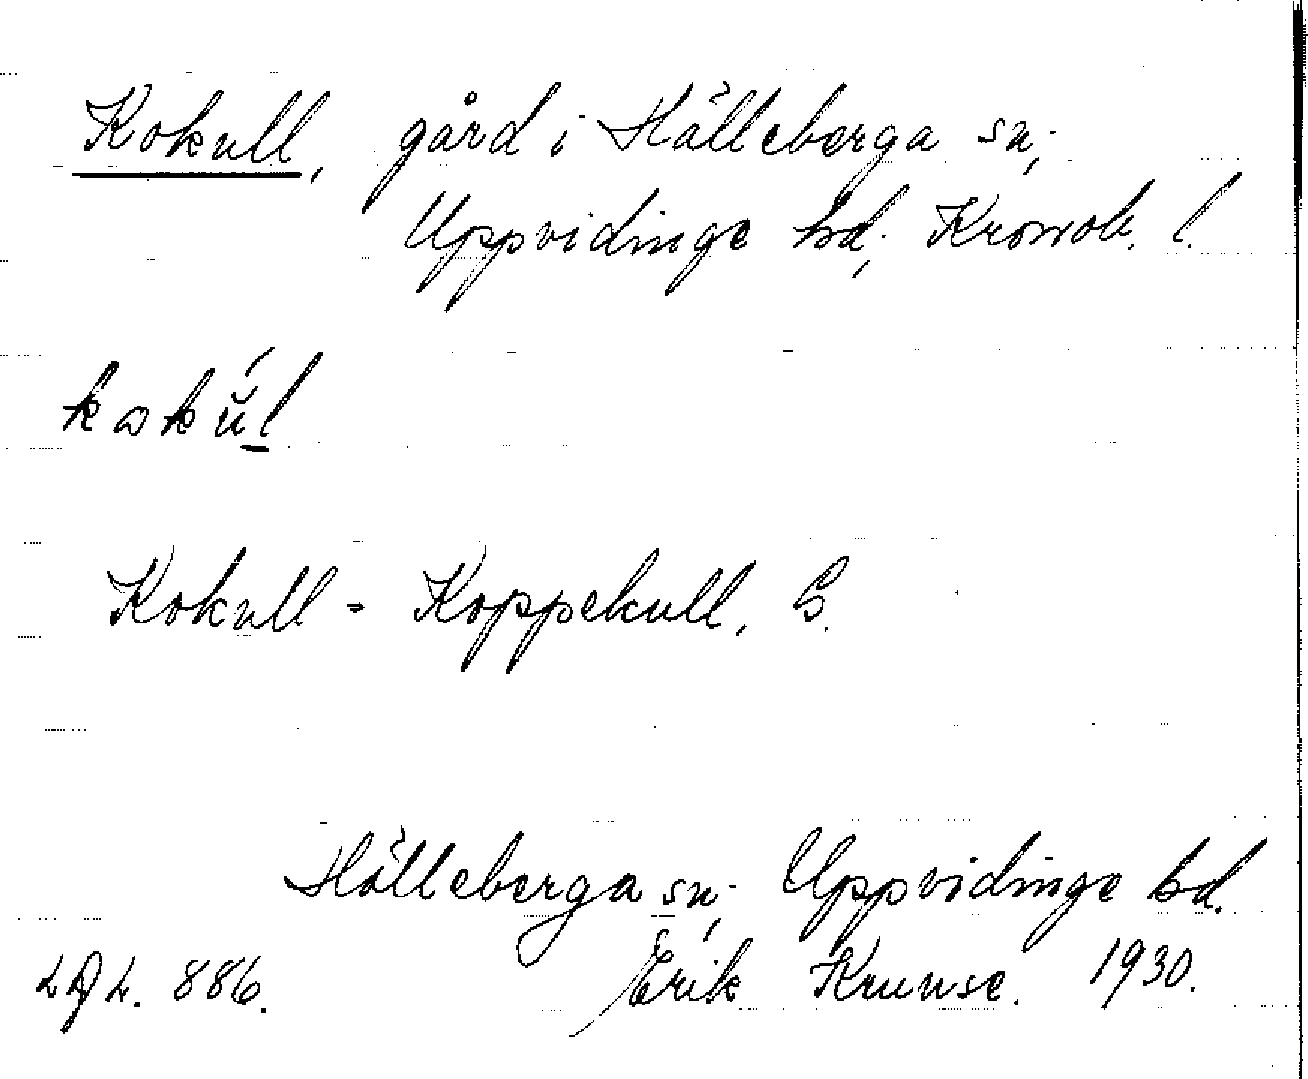 Kokull, gård i Hälleberga sn,
Uppvidinge hd, Kronob. l.
kokŭ́l
Kokull - Koppekull, S.
Hälleberga sn, Uppvidinge hd.
886. Erik Kruuse. 1930.